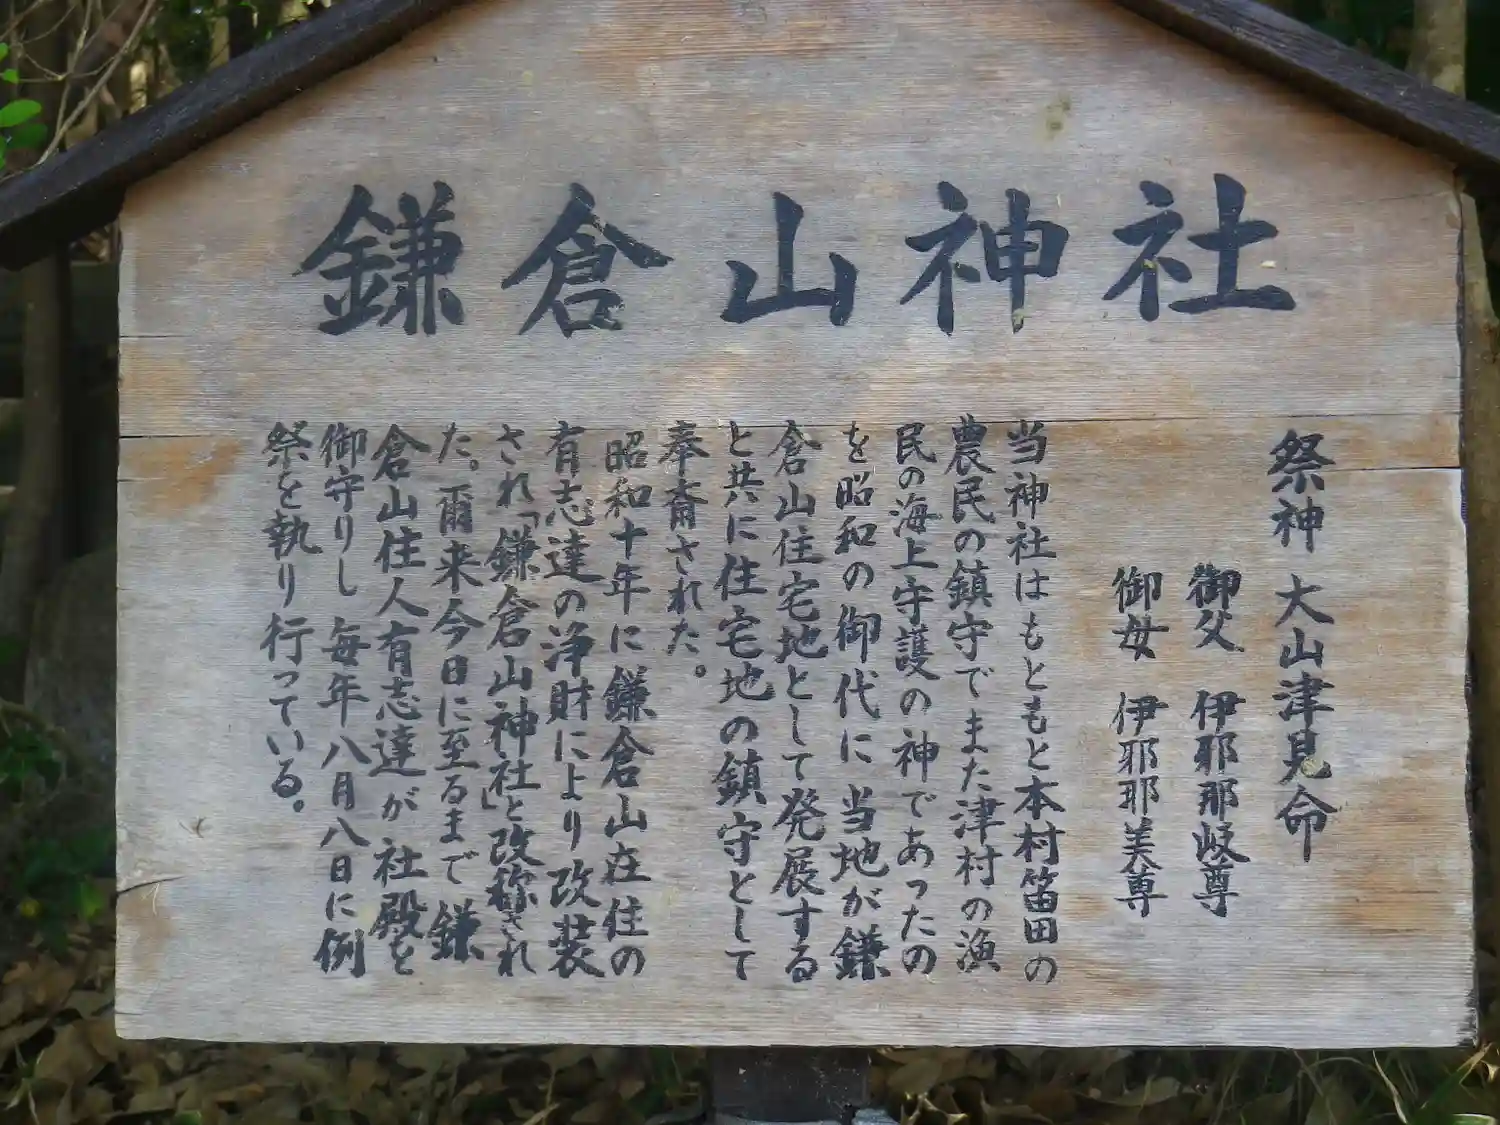 鎌倉山神社
祭神 大山津見命
御父 伊耶那岐尊
御母 伊耶那美尊
当神社はもともと本村笛田の
農民の鎮守でまた津村の漁
民の海上守護の神であったの
を昭和の御代に当地が鎌
倉山住宅地として発展する
と共に住宅地の鎮守として
奉斎された。
昭和十年に鎌倉山在住の
有志達の浄財により改装
され「鎌倉山神社」と改称され
た。爾来今日に至るまで鎌
倉山住人有志達が社殿を
御守りし 毎年八月八日に例
祭を執り行っている。